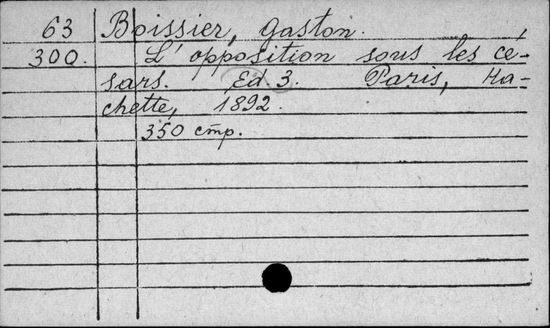 63 Boissier, Gaston.
300. L'opposition sous les cé-
sars. Ed. 3. Paris, Ha-
chette, 1892.
350 стр.